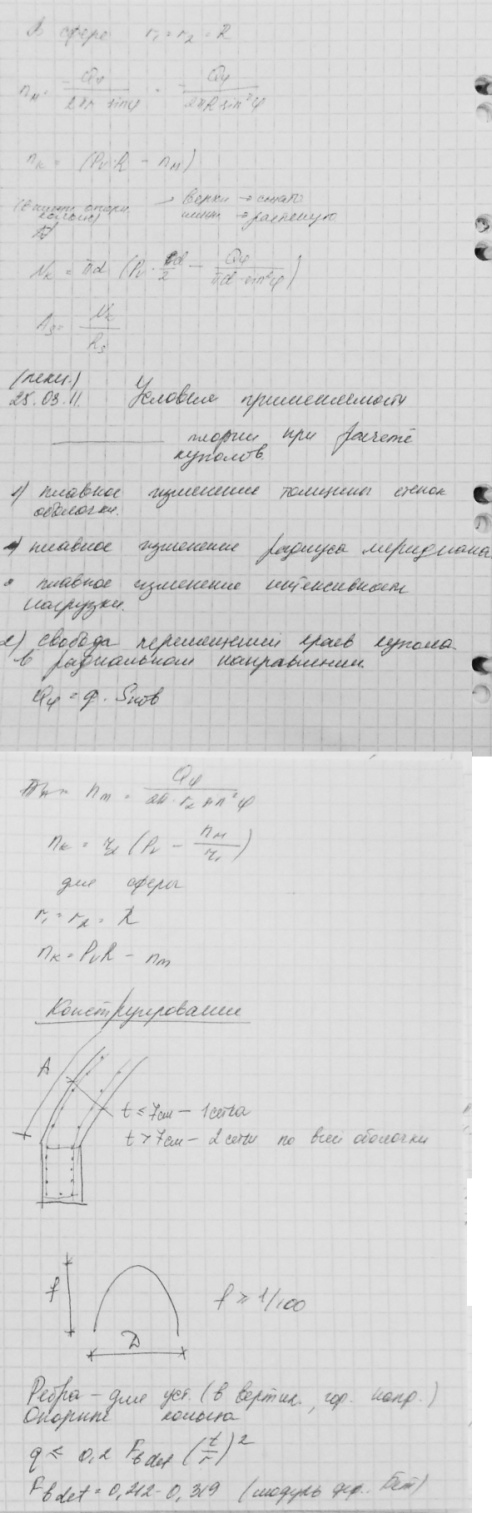 сфера r₁ = r₂ = R
nм = Qφ / 2πr sinφ = Qφ / 2πR sin²φ
nк = (Pν R − nм)
верхн → сжато
нижн → растянуто
Nк = πd (Pν · d/2 − Qφ / πd · sin²φ)
(лекц.)
25.03.11. Условия применимости
теории при расчете
куполов.
1) плавное изменение толщины стенок
оболочки.
плавное изменение радиуса меридиана
плавное изменение интенсивности
нагрузки.
2) свобода перемещений краев купола
в радиальном направлении.
Qφ = q · Sпов
nм = Qφ / 2π · r₂ sin²φ
nк = r₂ (Pν − nм / r₁)
для сферы
r₁ = r₂ = R
nк = PνR − nм
Конструирование
A
t ≤ 7см – 1 сетка
t > 7см – 2 сетки по всей оболочки
f f ≥ 1/100
D
Ребра – для уст. (в вертик., гор. напр.)
Опорные кольца
q ≤ 0,2 Fb det (t/r)²
Fb det = 0,212 – 0,319 (модуль деф. бет)